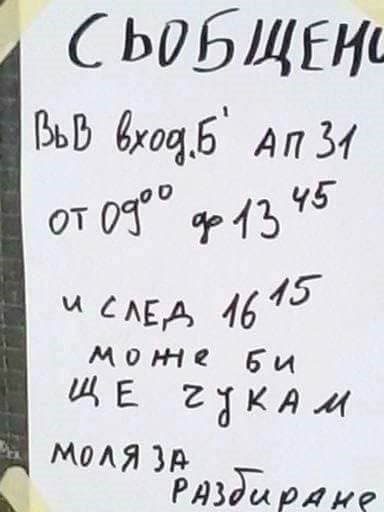 СЬОБЩЕНИ
ВЬВ вход.Б' АП 31
ОТ 09⁰⁰ до 13⁴⁵
и СЛЕД 16¹⁵
може би
ЩЕ ЧУКАМ
МОЛЯ ЗА
РАЗбиране